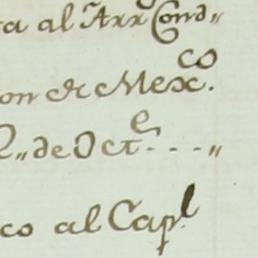 ta al Arr Cond„
on de Mexco.
2„ de Octe - - - „
co al Capl